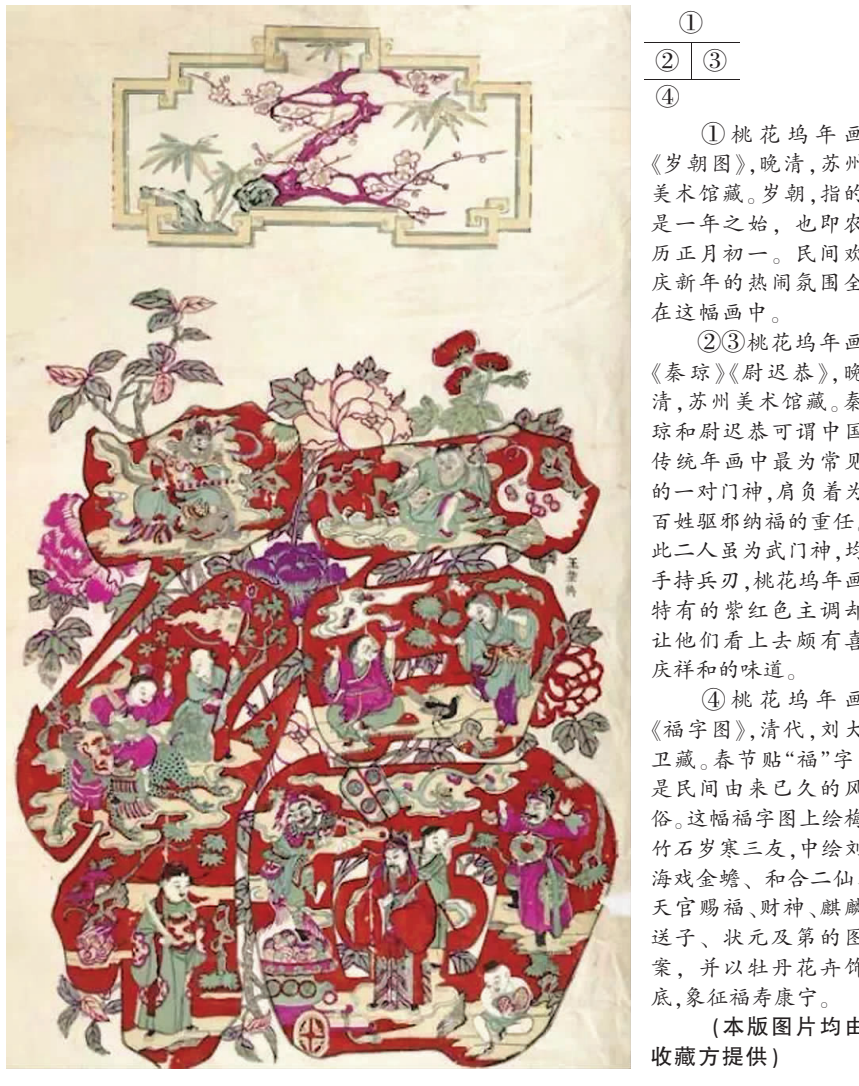 ①
② ③
④
①桃花坞年画
《岁朝图》,晚清,苏州
美术馆藏。岁朝,指的
是一年之始，也即农
历正月初一。民间欢
庆新年的热闹氛围全
在这幅画中。
②③桃花坞年画
《秦琼》《尉迟恭》,晚
清,苏州美术馆藏。秦
琼和尉迟恭可谓中国
传统年画中最为常见
的一对门神,肩负着为
百姓驱邪纳福的重任。
此二人虽为武门神,均
手持兵刃,桃花坞年画
特有的紫红色主调却
让他们看上去颇有喜
庆祥和的味道。
④桃花坞年画
《福字图》,清代,刘大
卫藏。春节贴“福”字
是民间由来已久的风
俗。这幅福字图上绘梅
竹石岁寒三友,中绘刘
海戏金蟾、和合二仙、
天官赐福、财神、麒麟
送子、状元及第的图
案，并以牡丹花卉饰
底,象征福寿康宁。
(本版图片均由
收藏方提供)